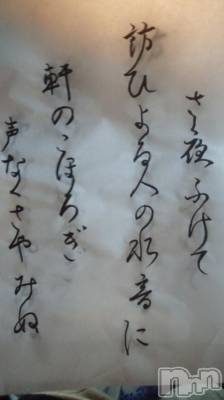 さ夜ふけて
訪ひよる人の水音に
軒のこほろぎ
声なくさやみぬ